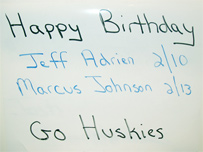 Happy Birthday
Jeff Adrien 2/10
Marcus Johnson 2/13
Go Huskies